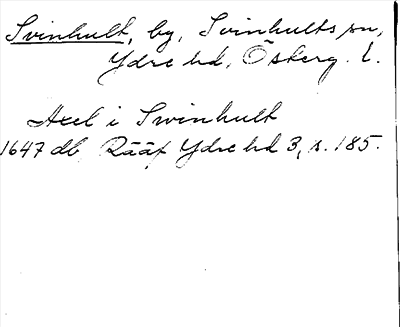 Svinhult, by, Svinhults sn,
Ydre hd, Österg. l.
Axel i Swinhult
1647 db Rääf Ydre hd 3, s. 185.